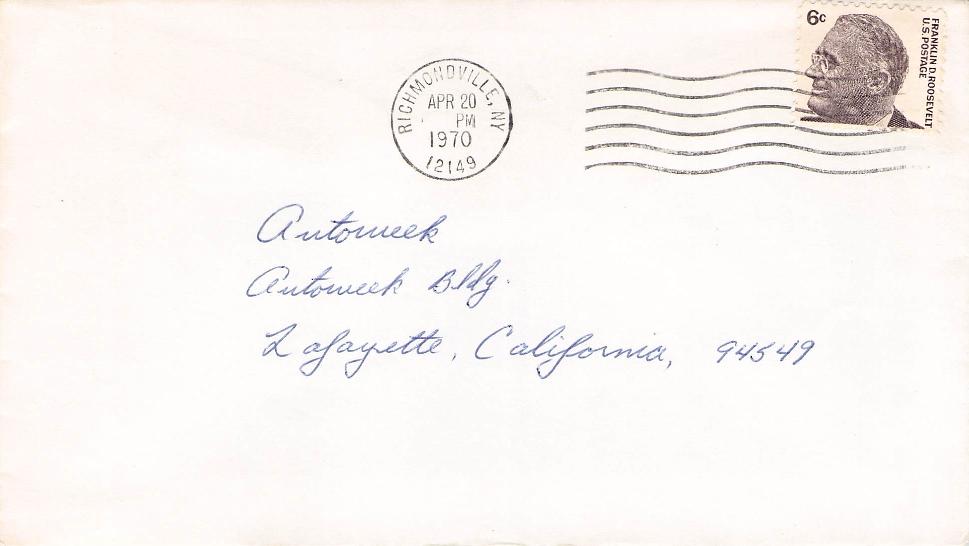 6c
FRANKLIN D. ROOSEVELT
U.S. POSTAGE
RICHMONDVILLE, NY
APR 20
PM
1970
12149
Autoweek
Autoweek Bldg.
Lafayette, California, 94549